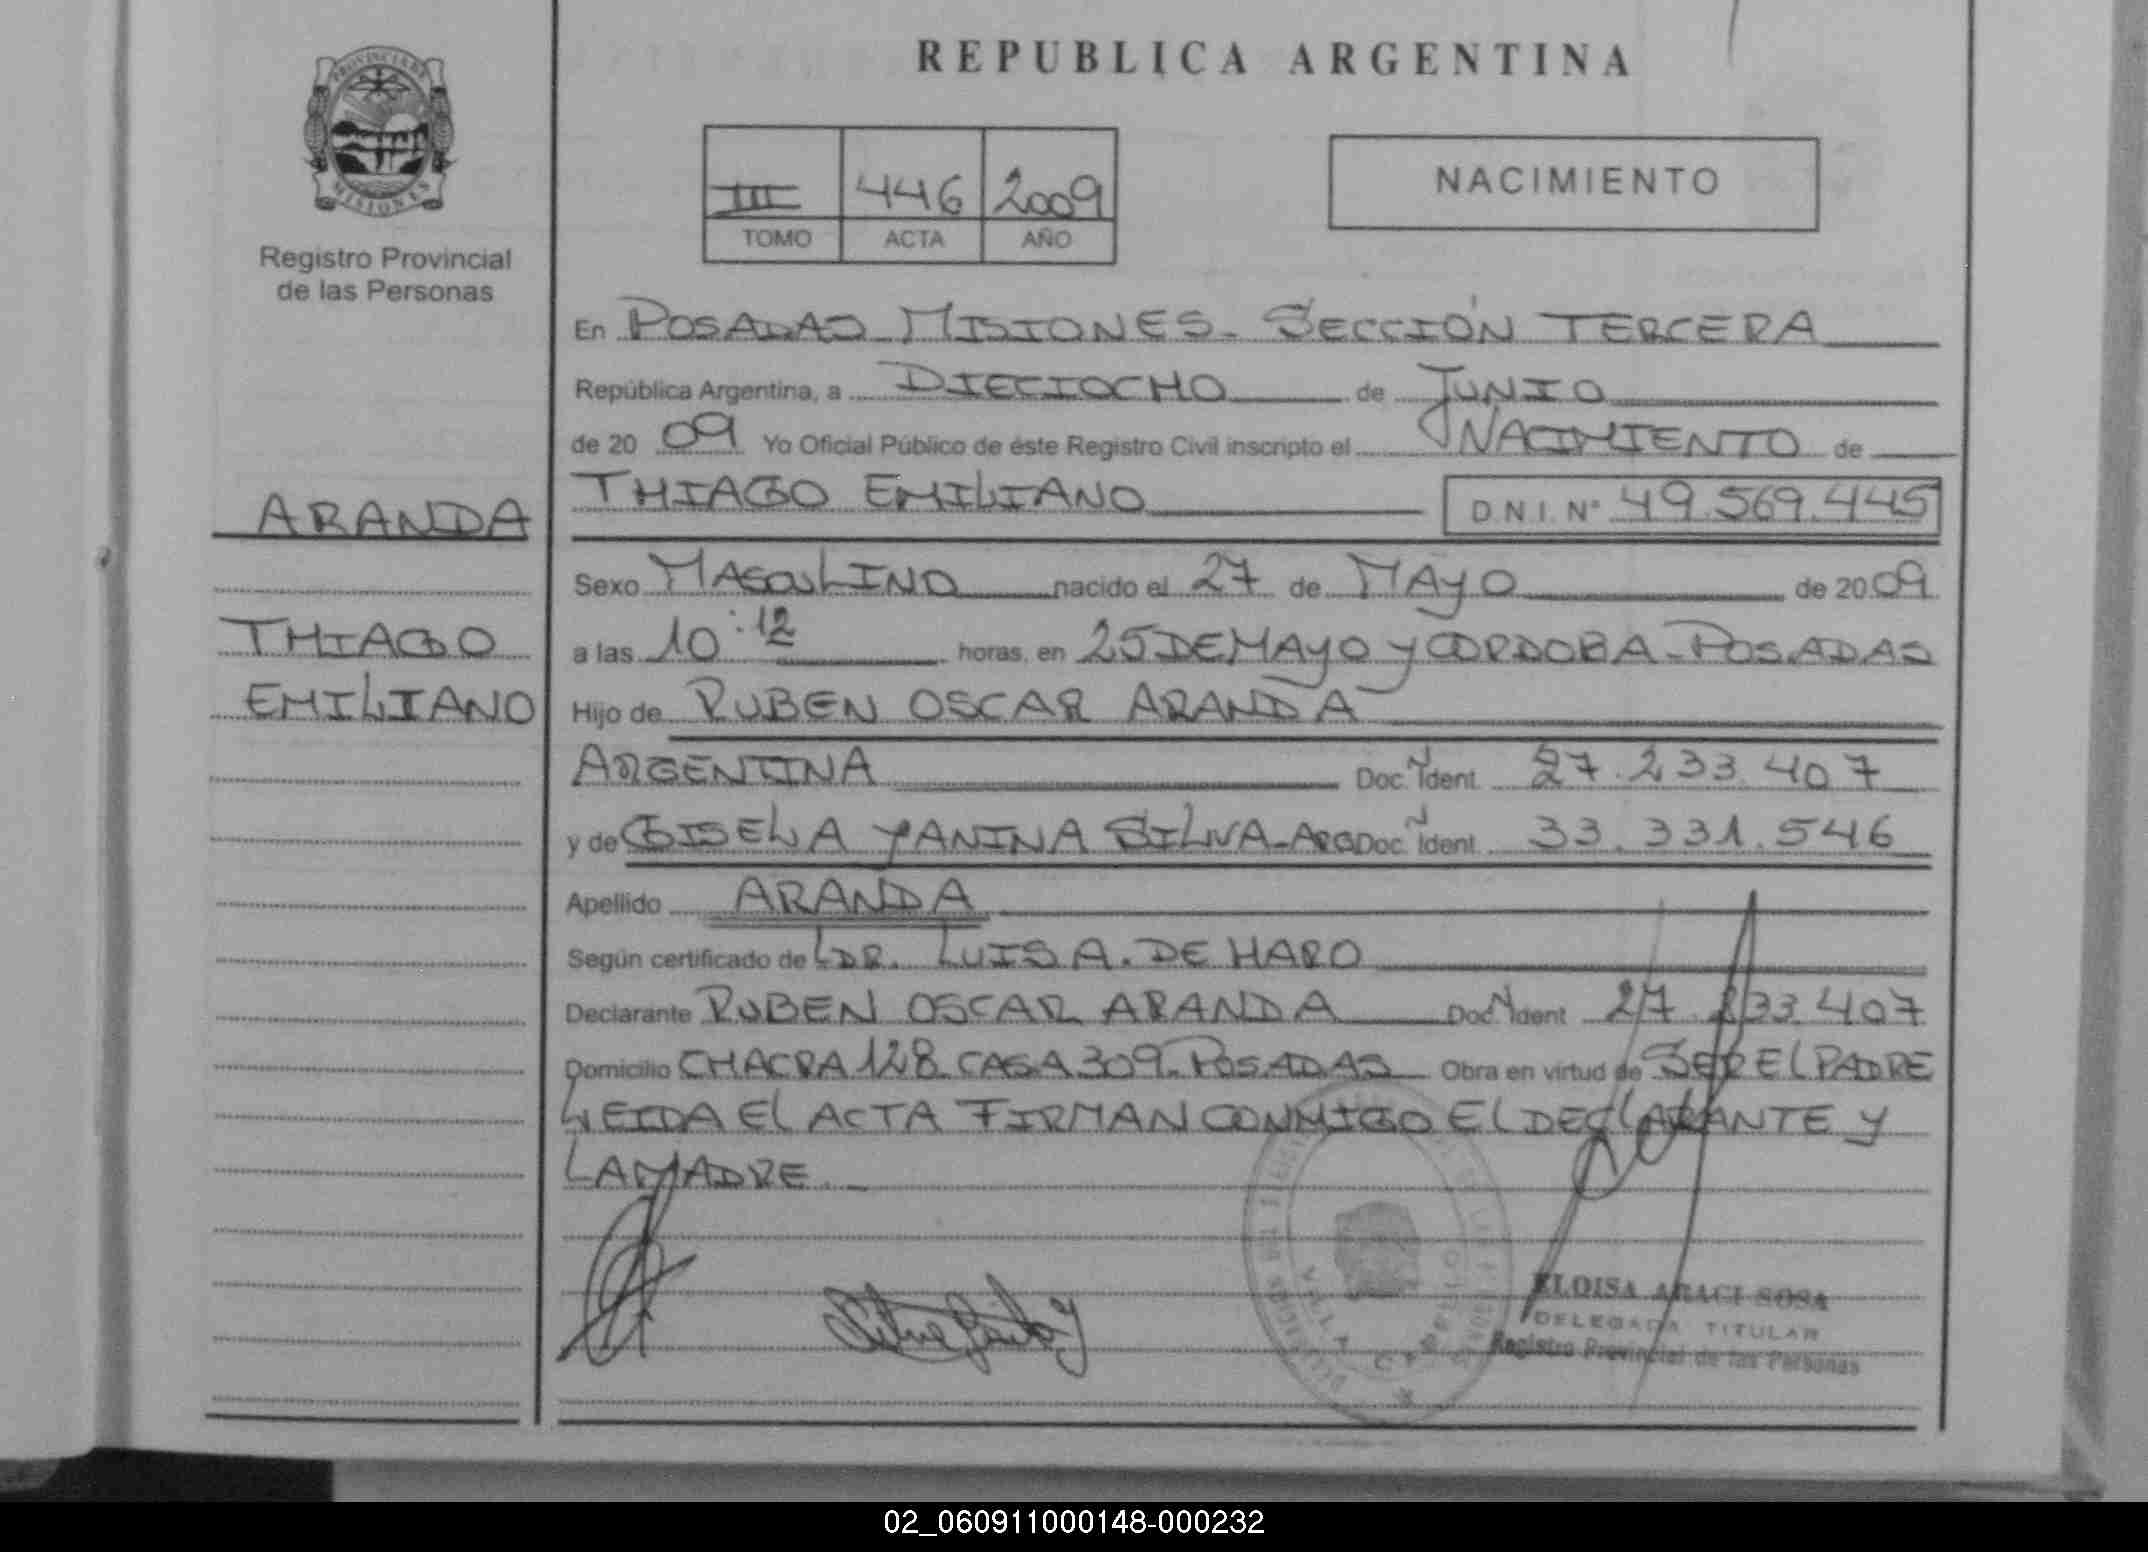 REPUBLICA ARGENTINA
PROVINCIA DE
MISIONES
Registro Provincial
de las Personas
III 446 2009
TOMO ACTA AÑO
NACIMIENTO
En POSADAS MISIONES - SECCIÓN TERCERA
República Argentina, a DIECIOCHO de JUNIO
de 20 09 Yo Oficial Público de éste Registro Civil inscripto el NACIMIENTO de
THIAGO EMILIANO D.N.I. Nº 49.569.445
ARANDA
THIAGO
EMILIANO
Sexo MASCULINO nacido el 27 de MAYO de 20 09
a las 10:12 horas, en 25 DE MAYO Y CORDOBA - POSADAS
Hijo de RUBEN OSCAR ARANDA
ARGENTINA Doc. N Ident. 27.233.407
y de GISELA YANINA SILVA - ARG Doc. N Ident. 33.331.546
Apellido ARANDA
Según certificado de DR. LUIS A. DE HARO
Declarante RUBEN OSCAR ARANDA Doc N Ident 27.233.407
Domicilio CHACRA 128 CASA 309 - POSADAS Obra en virtud de SER EL PADRE
LEIDA EL ACTA FIRMAN CONMIGO EL DECLARANTE Y
LA MADRE. -
ELOISA ARACI SOSA
DELEGADA TITULAR
Registro Provincial de las Personas
02_060911000148-000232